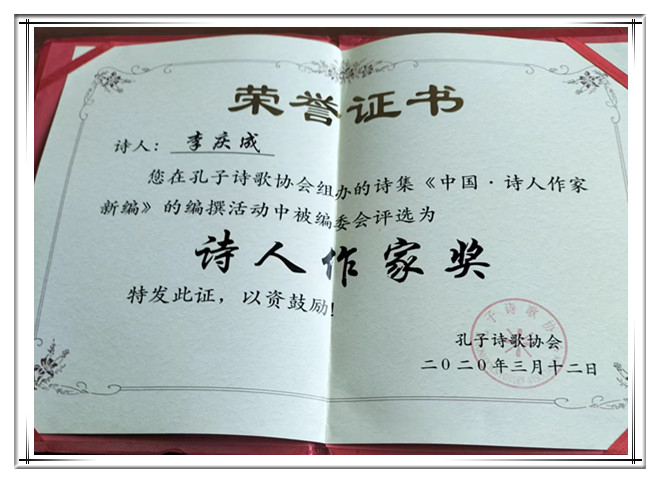 荣誉证书
诗人：李庆成
您在孔子诗歌协会组办的诗集《中国·诗人作家
新编》的编撰活动中被编委会评选为
诗人作家奖
特发此证，以资鼓励！
孔子诗歌协会
二〇二〇年三月十二日